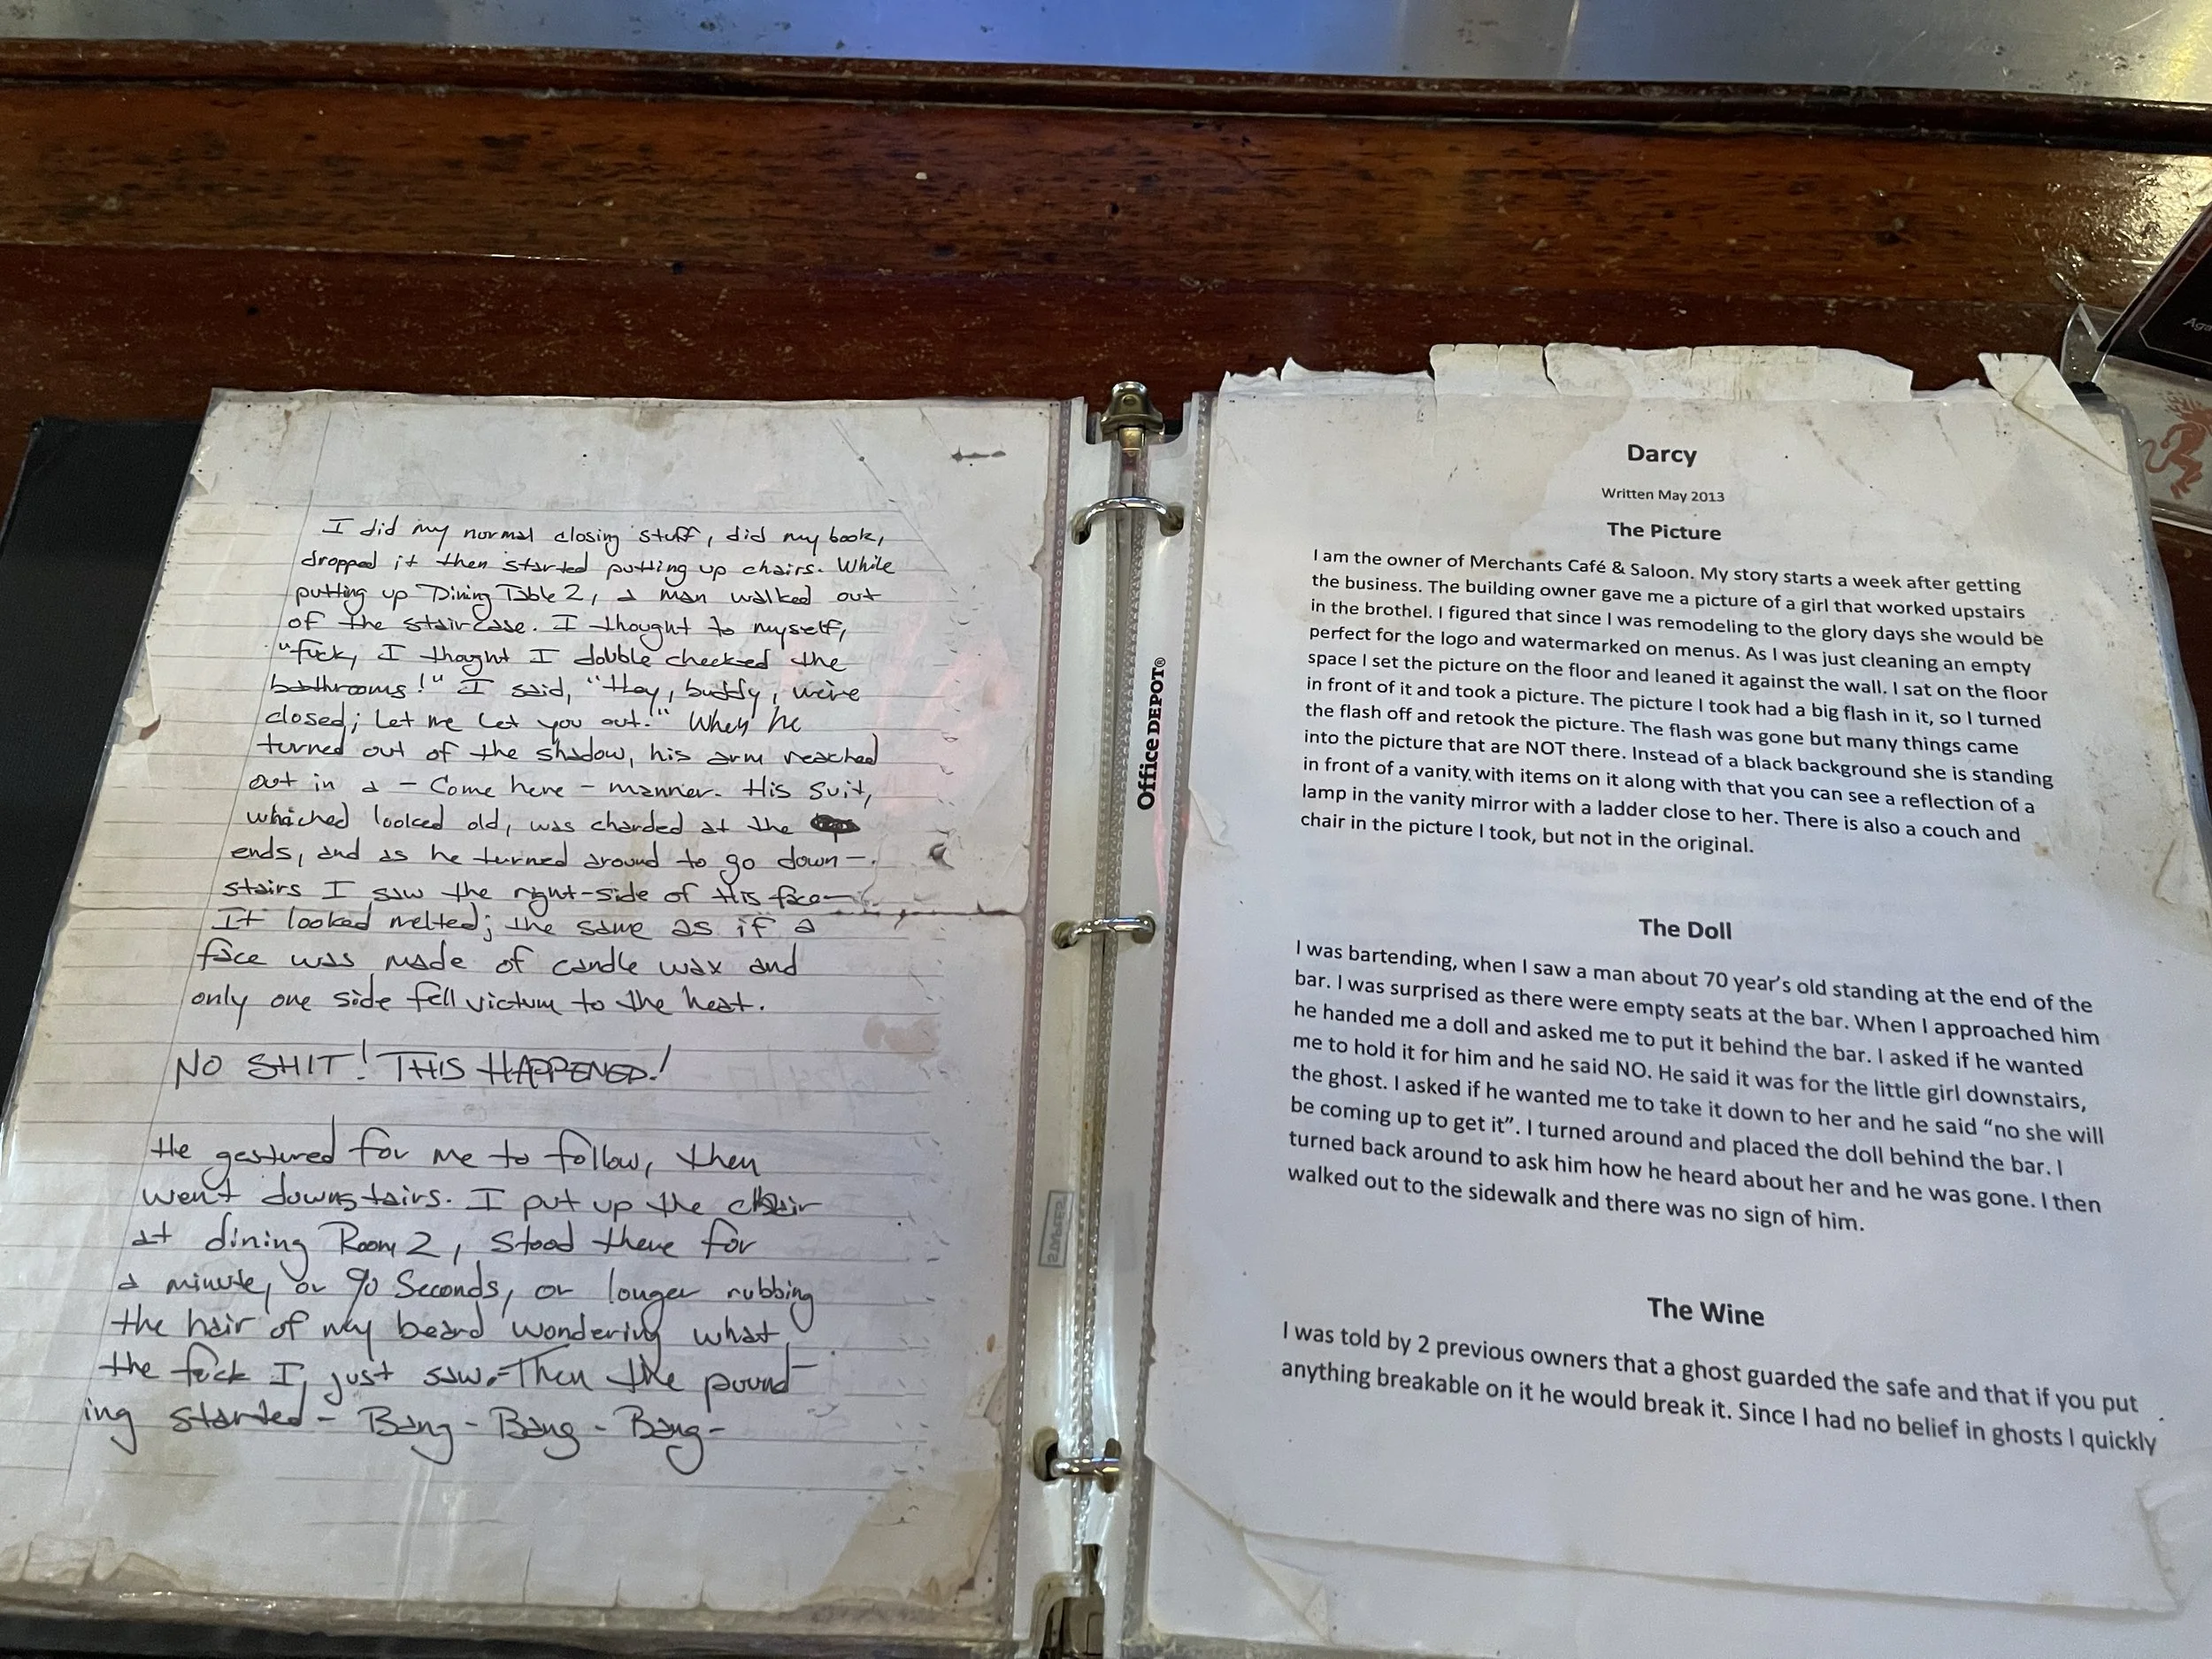 I did my normal closing stuff, did my book,
dropped it then started putting up chairs. While
putting up Dining Table 2, a man walked out
of the staircase. I thought to myself,
"fuck, I thoght I double checked the
bathrooms!" I said, "Hey, buddy, we're
closed; let me let you out." When he
turned out of the shadow, his arm reached
out in a - Come here - manner. His suit,
whiched looked old, was charded at the
ends, and as he turned around to go down-
stairs I saw the right-side of this face-
It looked melted; the same as if a
face was made of candle wax and
only one side fell victum to the heat.
NO SHIT! THIS HAPPENED!
He gestured for me to follow, then
went downstairs. I put up the chair
at dining Room 2, stood there for
a minute, or 90 Seconds, or longer rubbing
the hair of my beard wondering what
the fuck I just saw. Then the pound-
ing started - Bang - Bang - Bang -
Office DEPOT®
Darcy
Written May 2013
The Picture
I am the owner of Merchants Café & Saloon. My story starts a week after getting
the business. The building owner gave me a picture of a girl that worked upstairs
in the brothel. I figured that since I was remodeling to the glory days she would be
perfect for the logo and watermarked on menus. As I was just cleaning an empty
space I set the picture on the floor and leaned it against the wall. I sat on the floor
in front of it and took a picture. The picture I took had a big flash in it, so I turned
the flash off and retook the picture. The flash was gone but many things came
into the picture that are NOT there. Instead of a black background she is standing
in front of a vanity with items on it along with that you can see a reflection of a
lamp in the vanity mirror with a ladder close to her. There is also a couch and
chair in the picture I took, but not in the original.
The Doll
I was bartending, when I saw a man about 70 year's old standing at the end of the
bar. I was surprised as there were empty seats at the bar. When I approached him
he handed me a doll and asked me to put it behind the bar. I asked if he wanted
me to hold it for him and he said NO. He said it was for the little girl downstairs,
the ghost. I asked if he wanted me to take it down to her and he said "no she will
be coming up to get it". I turned around and placed the doll behind the bar. I
turned back around to ask him how he heard about her and he was gone. I then
walked out to the sidewalk and there was no sign of him.
The Wine
I was told by 2 previous owners that a ghost guarded the safe and that if you put
anything breakable on it he would break it. Since I had no belief in ghosts I quickly